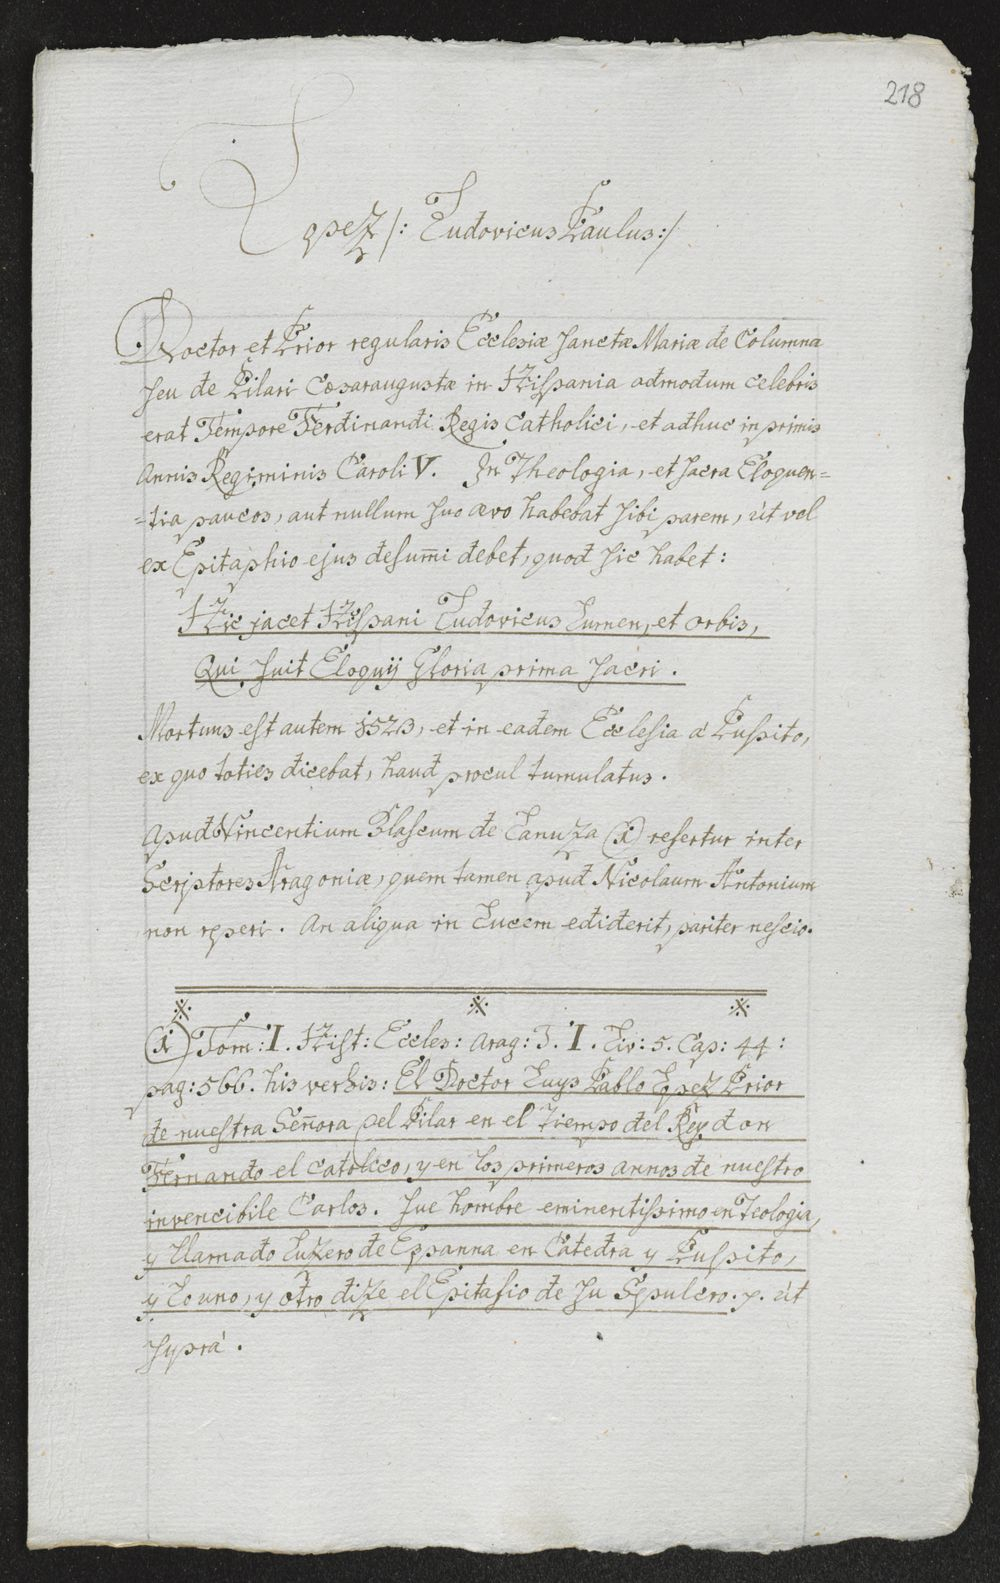 218
Lopez /: Ludovicus Paulus :/
Doctor et Prior regularis Ecclesiæ Sanctæ Mariæ de Columna
seu de Pilari Cæsaraugustæ in Hispania admodum celebris
erat Tempore Ferdinandi Regis Catholici, et adhuc in primis
Annis Regiminis Caroli V. In Theologia, et Sacra Eloquen=
=tia paucos, aut nullum suo ævo habebat sibi parem, út vel
ex Epitaphio ejus desum̄i debet, quod sic habet:
Hic jacet Hispani Ludovicus Lumen, et orbis,
Qui fuit Eloquij Gloria prima Sacri.
Mortuus est autem 1523, et in eadem Ecclesia á Pulpito,
ex quo toties dicebat, haud procul tumulatus.
Apud Vincentium Blascum de Lanuza (x) refertur inter
Scriptores Aragoniæ, quem tamen apud Nicolaum Antonium
non reperi. An aliqua in Lucem ediderit, pariter nescio.
(x) Tom: I. Hist: Eccles: Arag: T. I. Liv: 5. Cap: 44:
pag: 566. his verbis: El Doctor Luys Pablo Lopez Prior
de nuestra Señora del Pilar en el Tiempo del Rey don
Fernando el catolico, y en los primeros annos de nuestro
invencibile Carlos. fue hombre eminentissimo en Teologia,
y llamado Luzero de Espanna en Catedra y Pulpito,
y Lo uno, y otro dize el Epitafio de su Sepulcro. p. út
suprá.